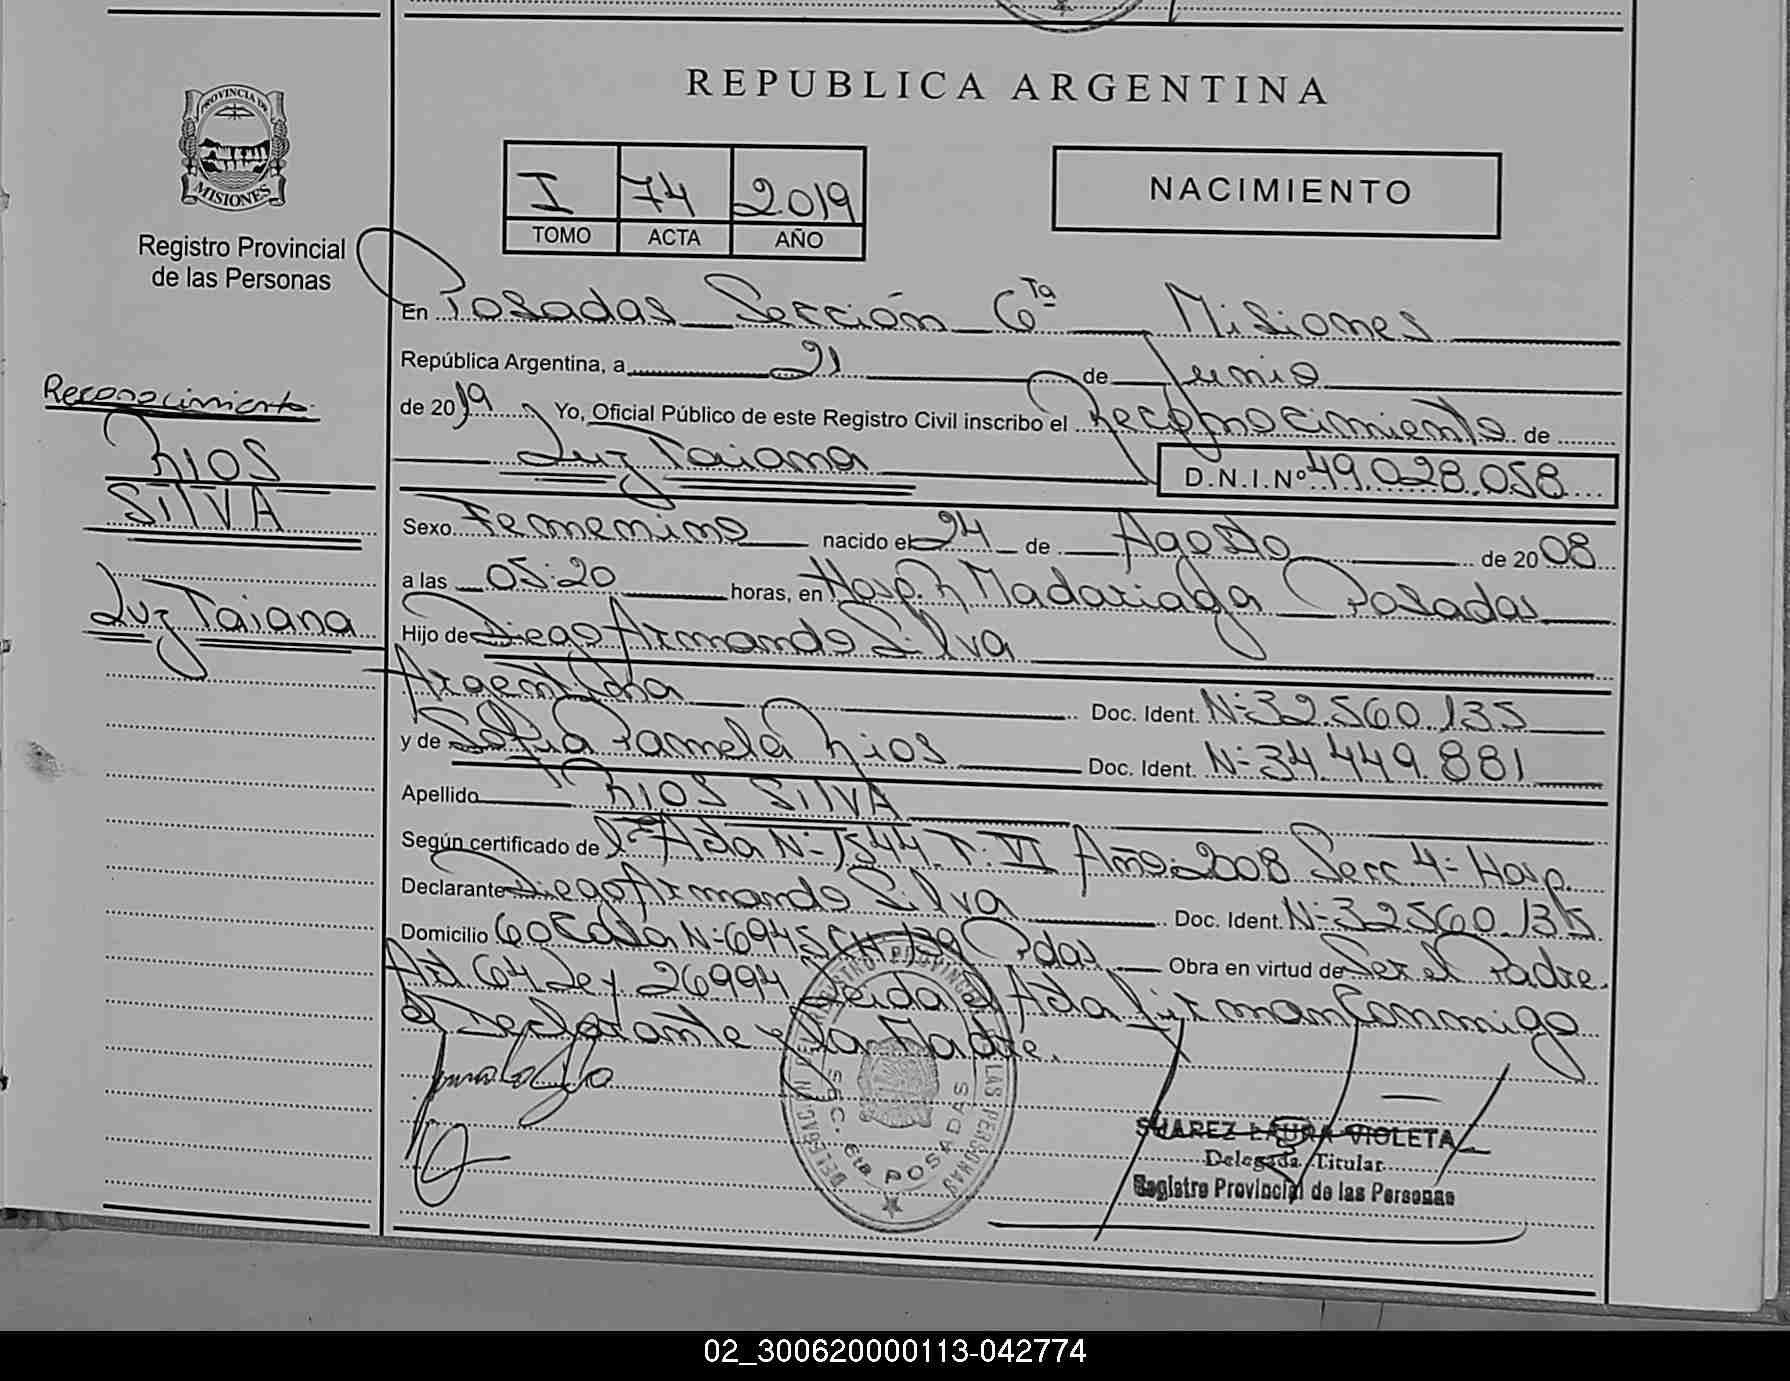 REPUBLICA ARGENTINA
PROVINCIA DE
MISIONES
Registro Provincial
de las Personas
I 74 2019
TOMO ACTA AÑO
NACIMIENTO
En Posadas Sección 6ta Misiones
República Argentina, a 21 de Junio
de 2019 Yo, Oficial Público de este Registro Civil inscribo el Reconocimiento de
Luz Taiana D.N.I.Nº 49.028.058
Sexo Femenino nacido el 24 de Agosto de 2008
a las 05:20 horas, en Hosp. R Madariaga Posadas
Hijo de Diego Armando Silva
Argentina Doc. Ident. Nº 32.560.135
y de Sofia Pamela Rios Doc. Ident. Nº 34.449.881
Apellido RIOS SILVA
Según certificado de Acta Nº 1544 T. VI Año 2008 Secc 4º Hosp.
Declarante Diego Armando Silva Doc. Ident. Nº 32560.135
Domicilio Nº 6945 CH 139 Pdas Obra en virtud de Ser el Padre
Art 64 Ley 26994 Leida el Acta firman Conmigo
el Declarante y la Madre.
Reconocimiento
RIOS
SILVA
Luz Taiana
DELEGACION DEL REGISTRO PROVINCIAL DE LAS PERSONAS
SECC. 6ta POSADAS
SUAREZ LAURA VIOLETA
Delegada Titular
Registro Provincial de las Personas
02_300620000113-042774